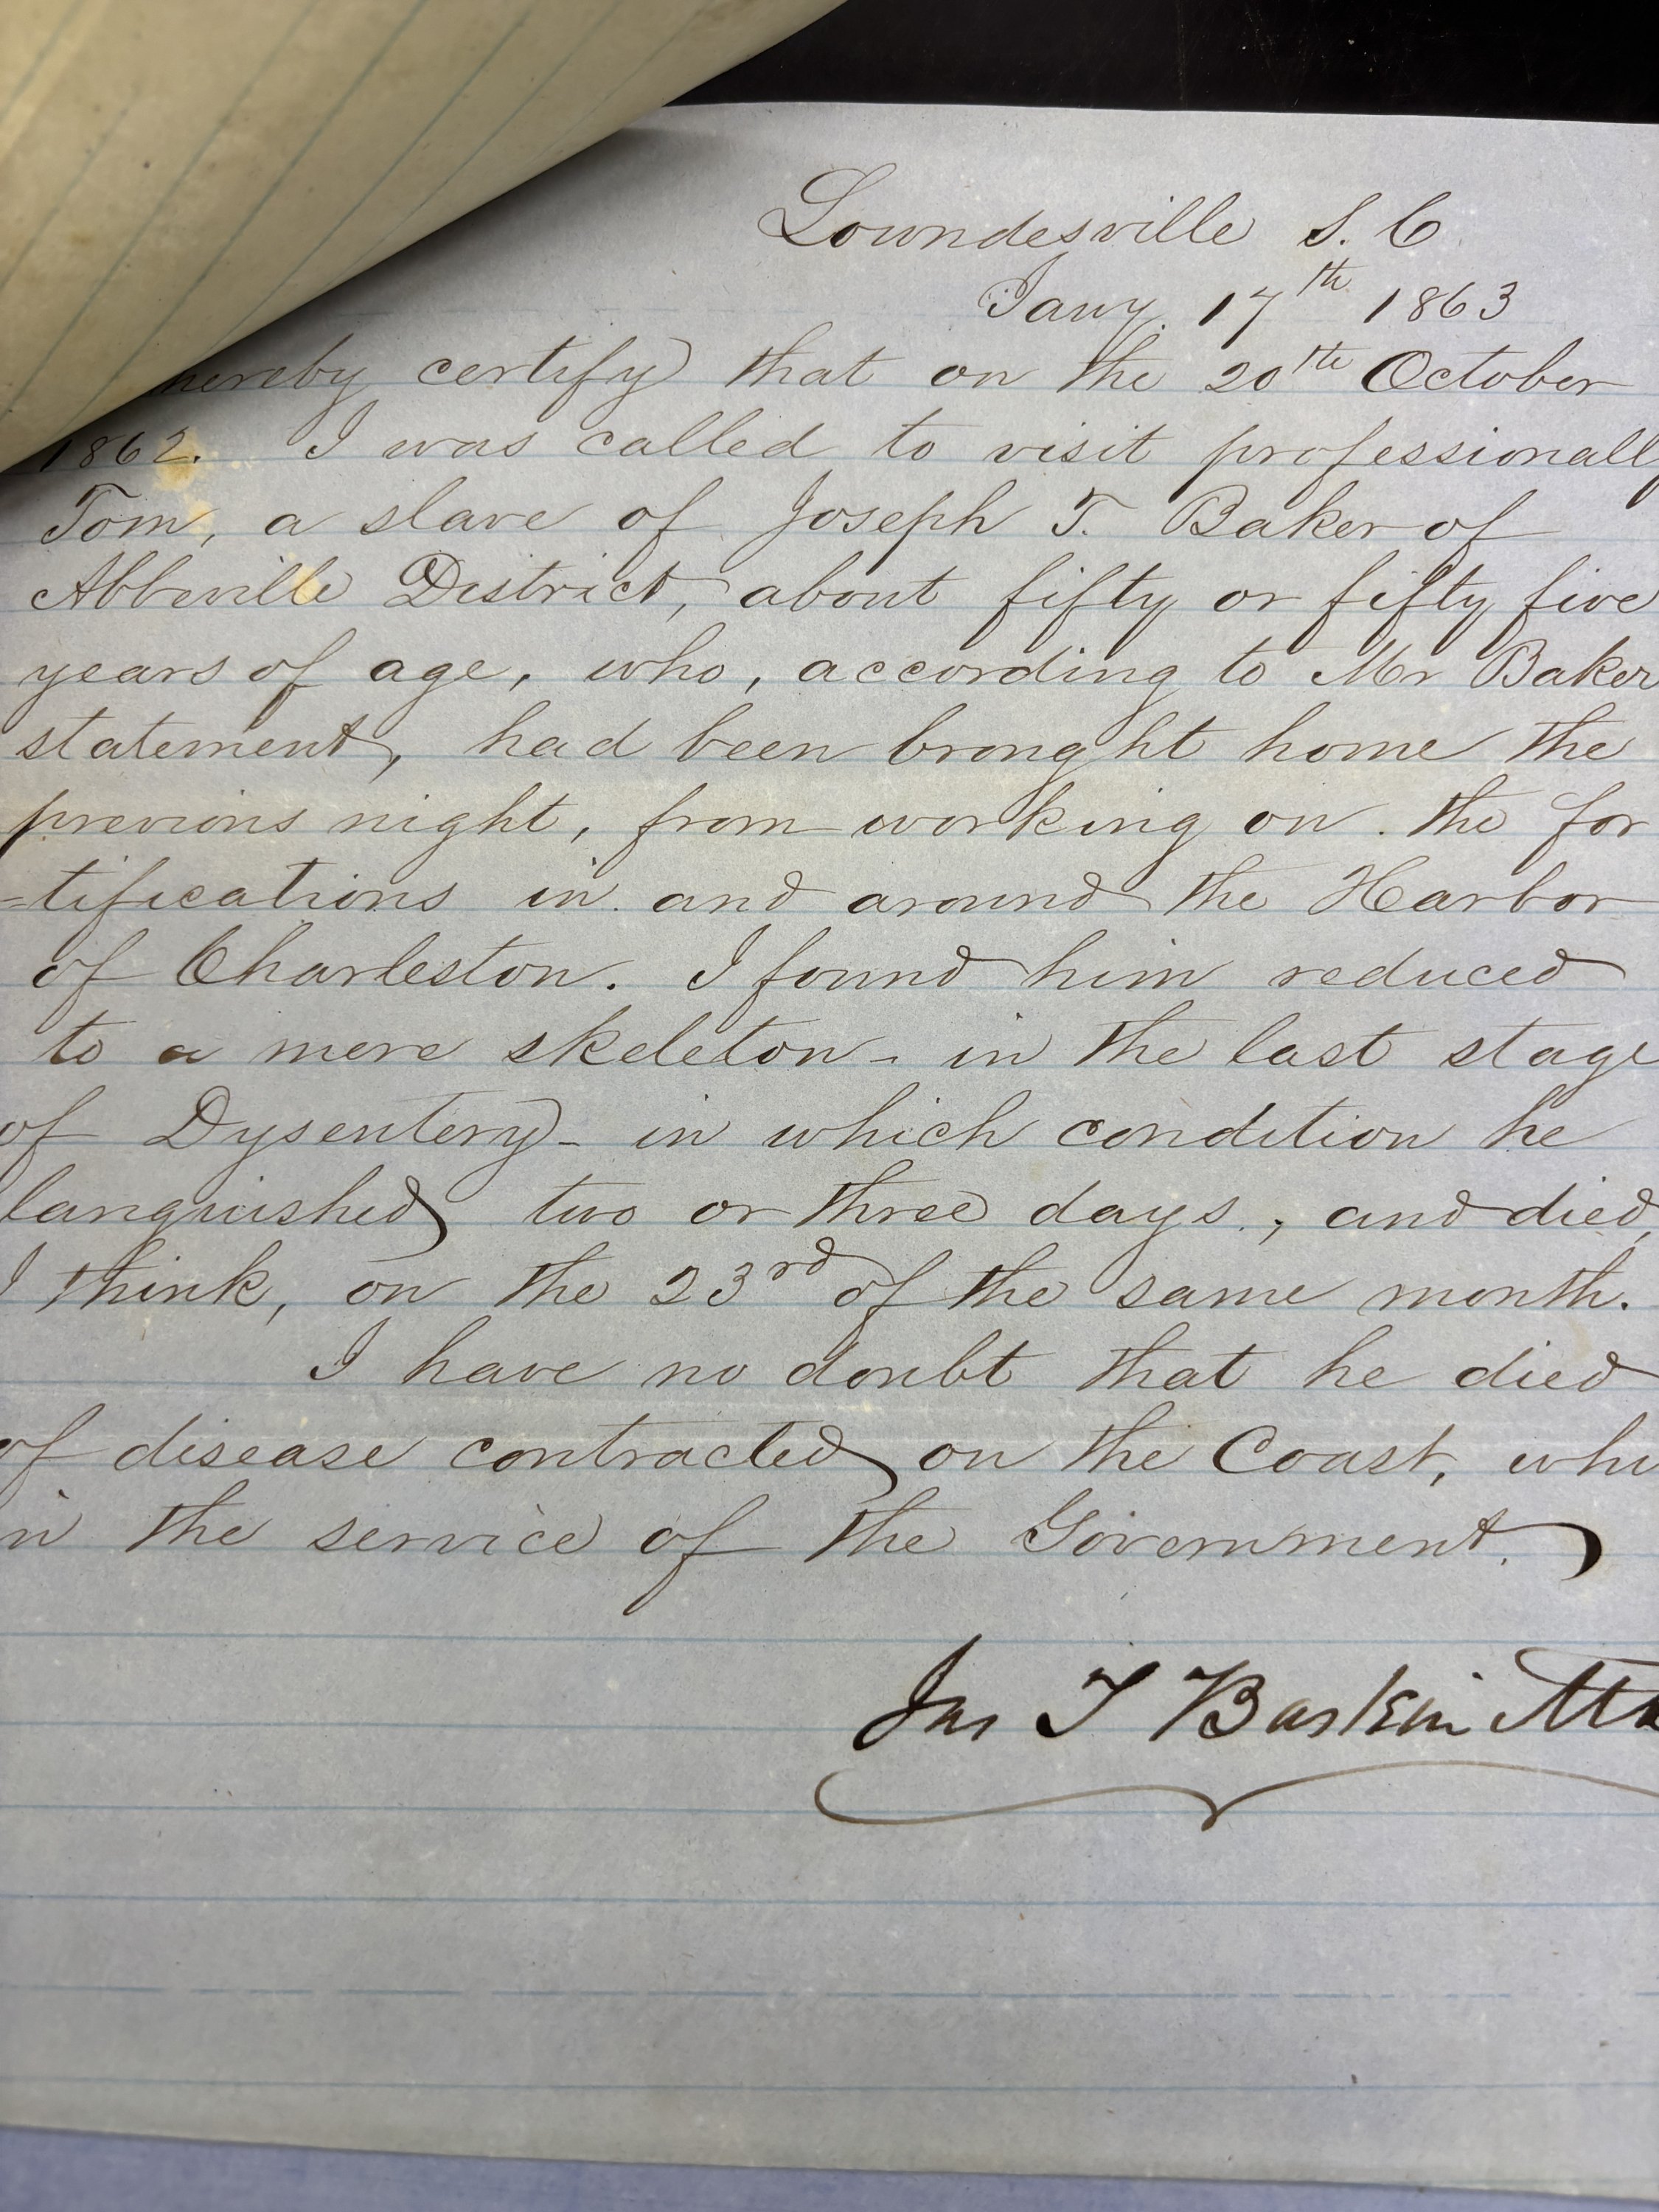 Lowndesville S. C
Jany. 17th 1863
hereby certify that on the 20th October
1862. I was called to visit professionall
Tom, a slave of Joseph T. Baker of
Abbeville District, about fifty or fifty five
years of age, who, according to Mr Baker
statement, had been brought home the
previous night, from working on the for
=tifications in and around the Harbor
of Charleston. I found him reduced
to a mere skeleton - in the last stage
of Dysentery - in which condition he
languished two or three days, and died,
I think, on the 23rd of the same month.
I have no doubt that he died
of disease contracted on the Coast, whi
in the service of the Government.
Jas T Baskin